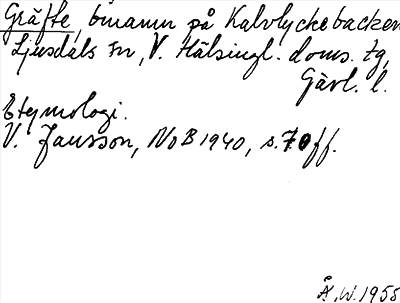 Gräfte, binamn på Kalvlyckebacken
Ljusdals sn, V. Hälsingl. doms. tg,
Gävl. l.
Etymologi.
V. Jansson, NoB 1940, s. 70ff.
Å. W. 1955